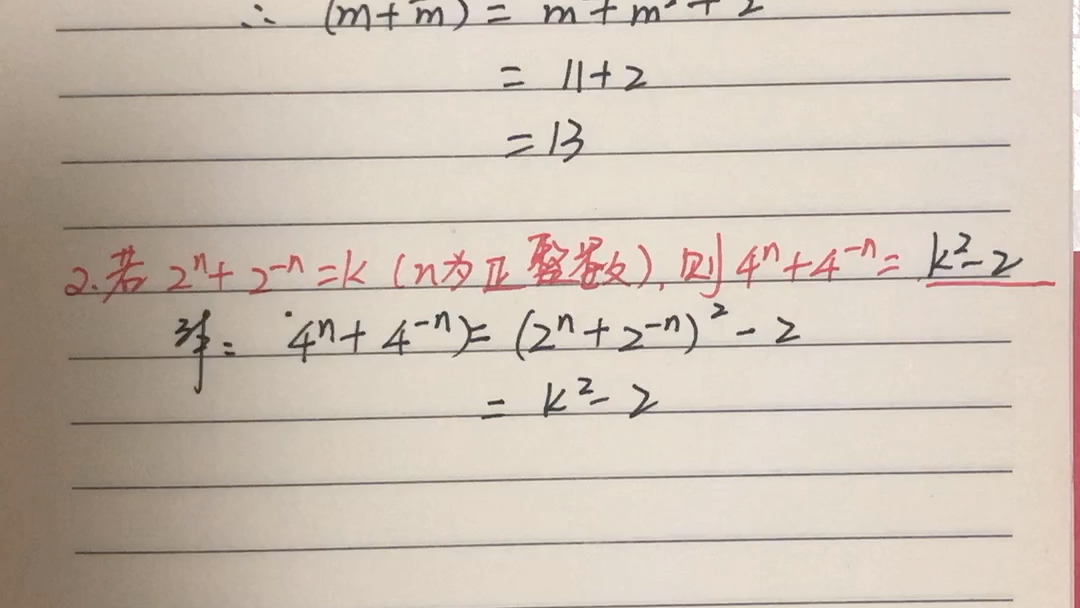 ∴ (m+m) = m+m²+2
= 11+2
= 13
2.若 2ⁿ+2⁻ⁿ=k (n为正整数),则4ⁿ+4⁻ⁿ= k²-2
解: 4ⁿ+4⁻ⁿ)= (2ⁿ+2⁻ⁿ)²-2
= k²-2